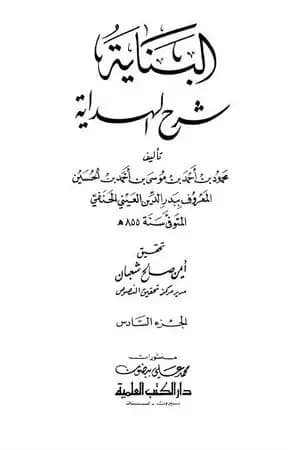 البناية
شرح الهداية
تأليف
محمود بن أحمد بن موسى بن أحمد بن الحسين
المعروف ببدر الدين العيني الحنفي
المتوفى سنة ٨٥٥ هـ
تحقيق
أيمن صالح شعبان
مدير مركز تحقيق النصوص
الجزء السادس
منشورات
محمد علي بيضون
دار الكتب العلمية
بيروت - لبنان